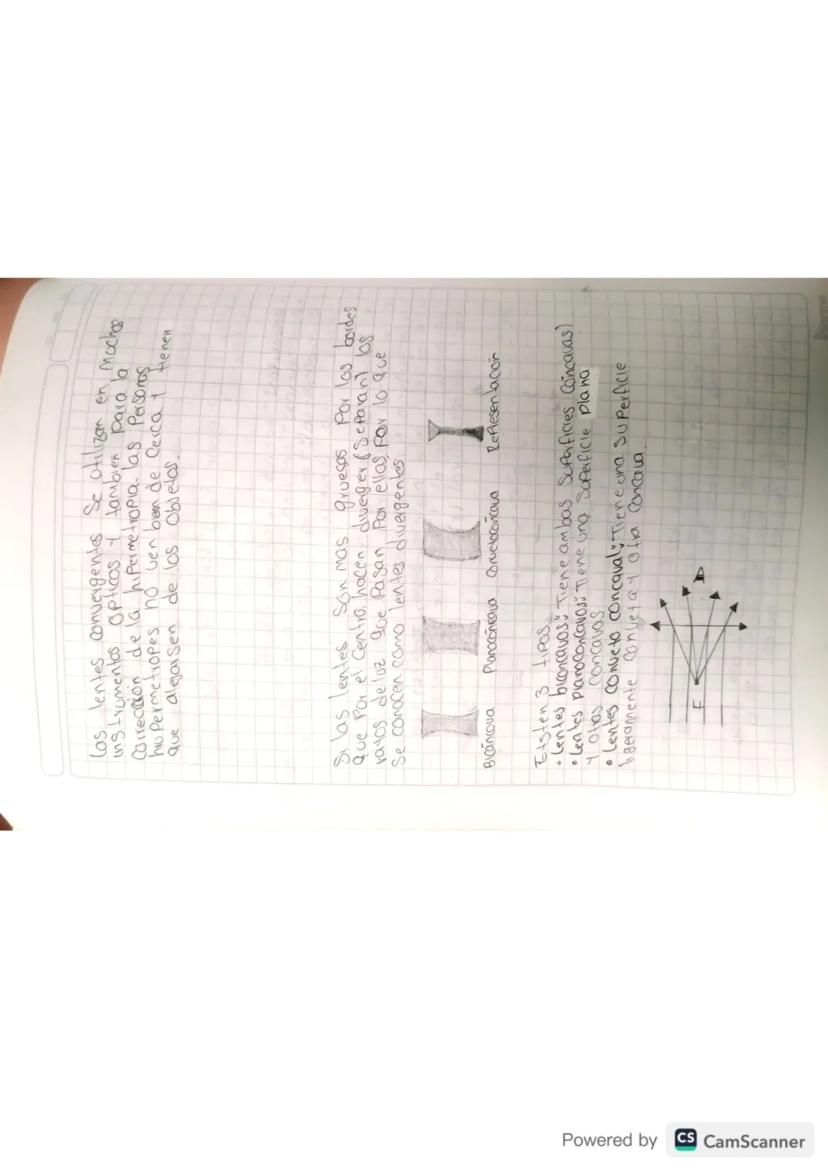 Las lentes convergentes se utilizan en muchos
instrumentos opticos y tambien para la
corrección de la hipermetropia. las Personas
hipermetropes no ven bien de cerca y tienen
que alejarsen de los Objetos.
Si las lentes son mas gruesas Por los bordes
que Por el Centro, hacen diverger (separan) los
rayos de luz que Pasan Por ellas, Por lo que
se conocen como lentes divergentes
Bicóncava Planocóncava Convetocóncava Representación
Existen 3 tipos
• Lentes biconcavos: Tiene ambas Superficies Cóncavas)
• Lentes planoconcavos: Tiene una Superficie plana
y otras concavos
• Lentes conveto concaval: Tiene una superficie
ligeramente conveta y otra concava.
F